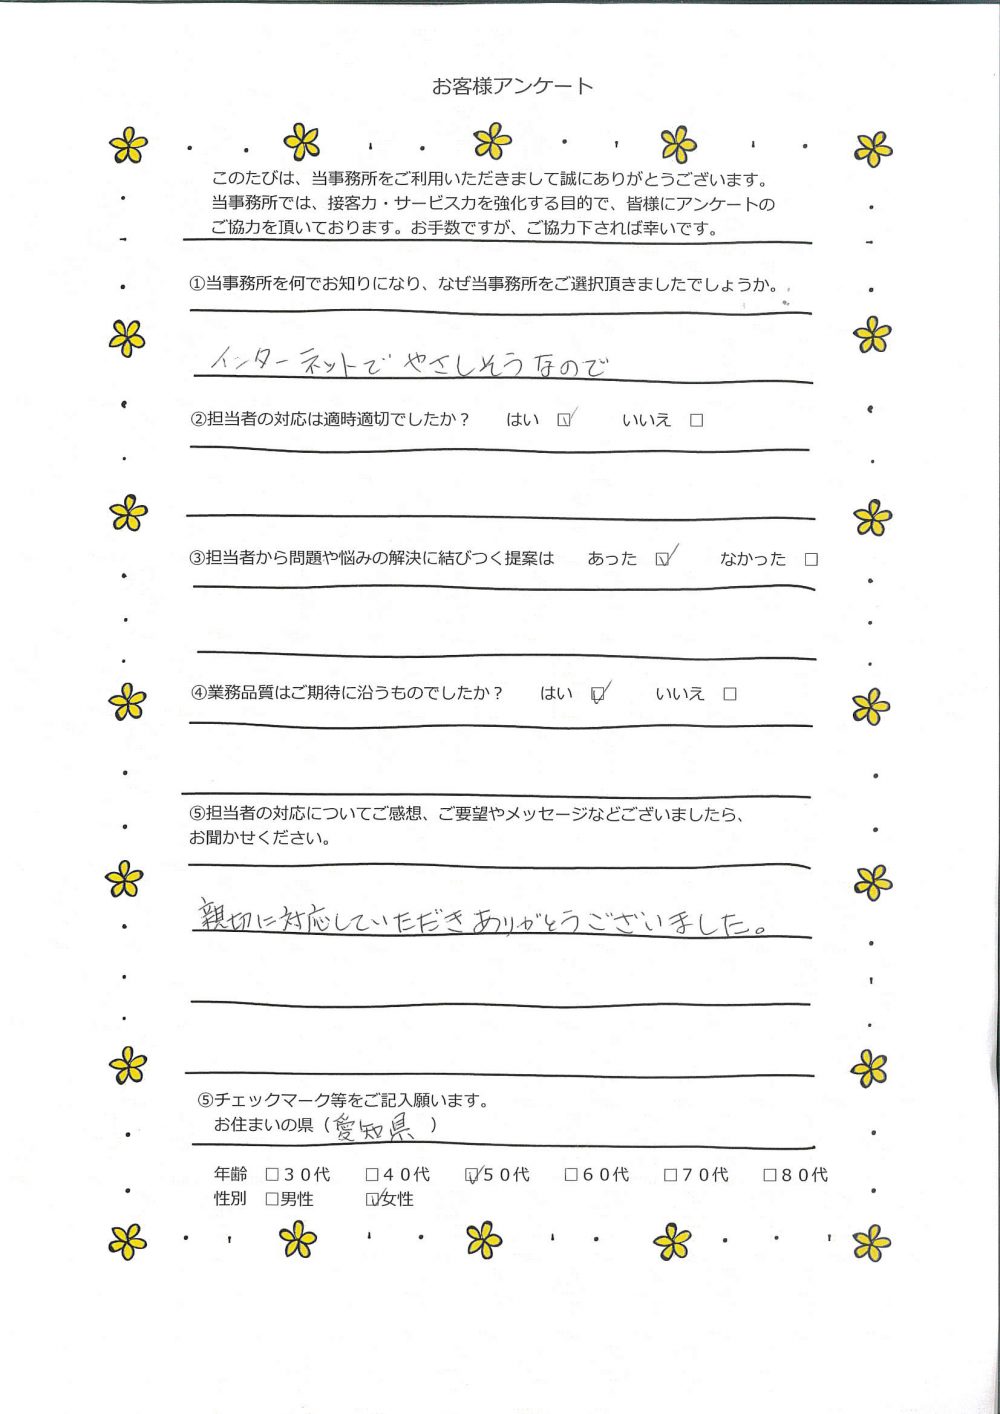 お客様アンケート
このたびは、当事務所をご利用いただきまして誠にありがとうございます。
当事務所では、接客力・サービス力を強化する目的で、皆様にアンケートの
ご協力を頂いております。お手数ですが、ご協力下されば幸いです。
①当事務所を何でお知りになり、なぜ当事務所をご選択頂きましたでしょうか。
インターネットで やさしそうなので
②担当者の対応は適時適切でしたか？ はい ☑ いいえ □
③担当者から問題や悩みの解決に結びつく提案は あった ☑ なかった □
④業務品質はご期待に沿うものでしたか？ はい ☑ いいえ □
⑤担当者の対応についてご感想、ご要望やメッセージなどございましたら、
お聞かせください。
親切に対応していただきありがとうございました。
⑤チェックマーク等をご記入願います。
お住まいの県（愛知県）
年齢 □３０代 □４０代 ☑５０代 □６０代 □７０代 □８０代
性別 □男性 ☑女性